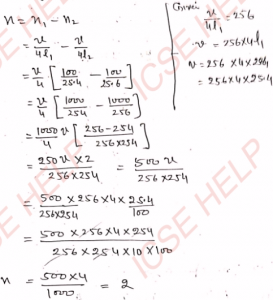 n = n₁ - n₂
= v/4l₁ - v/4l₂
= v/4 [100/25.4 - 100/25.6]
= v/4 [1000/254 - 1000/256]
= 1000 v/4 [256-254/256×254]
= 250 v × 2/256×254 = 500 v/256×254
= 500×256×4×25.4/256×254 100
= 500×256×4×254/256×254×10×100
n = 500×4/1000 = 2
v/4l₁ = 256
v = 256×4l₁
= 256×4×25.4
ICSE HELP